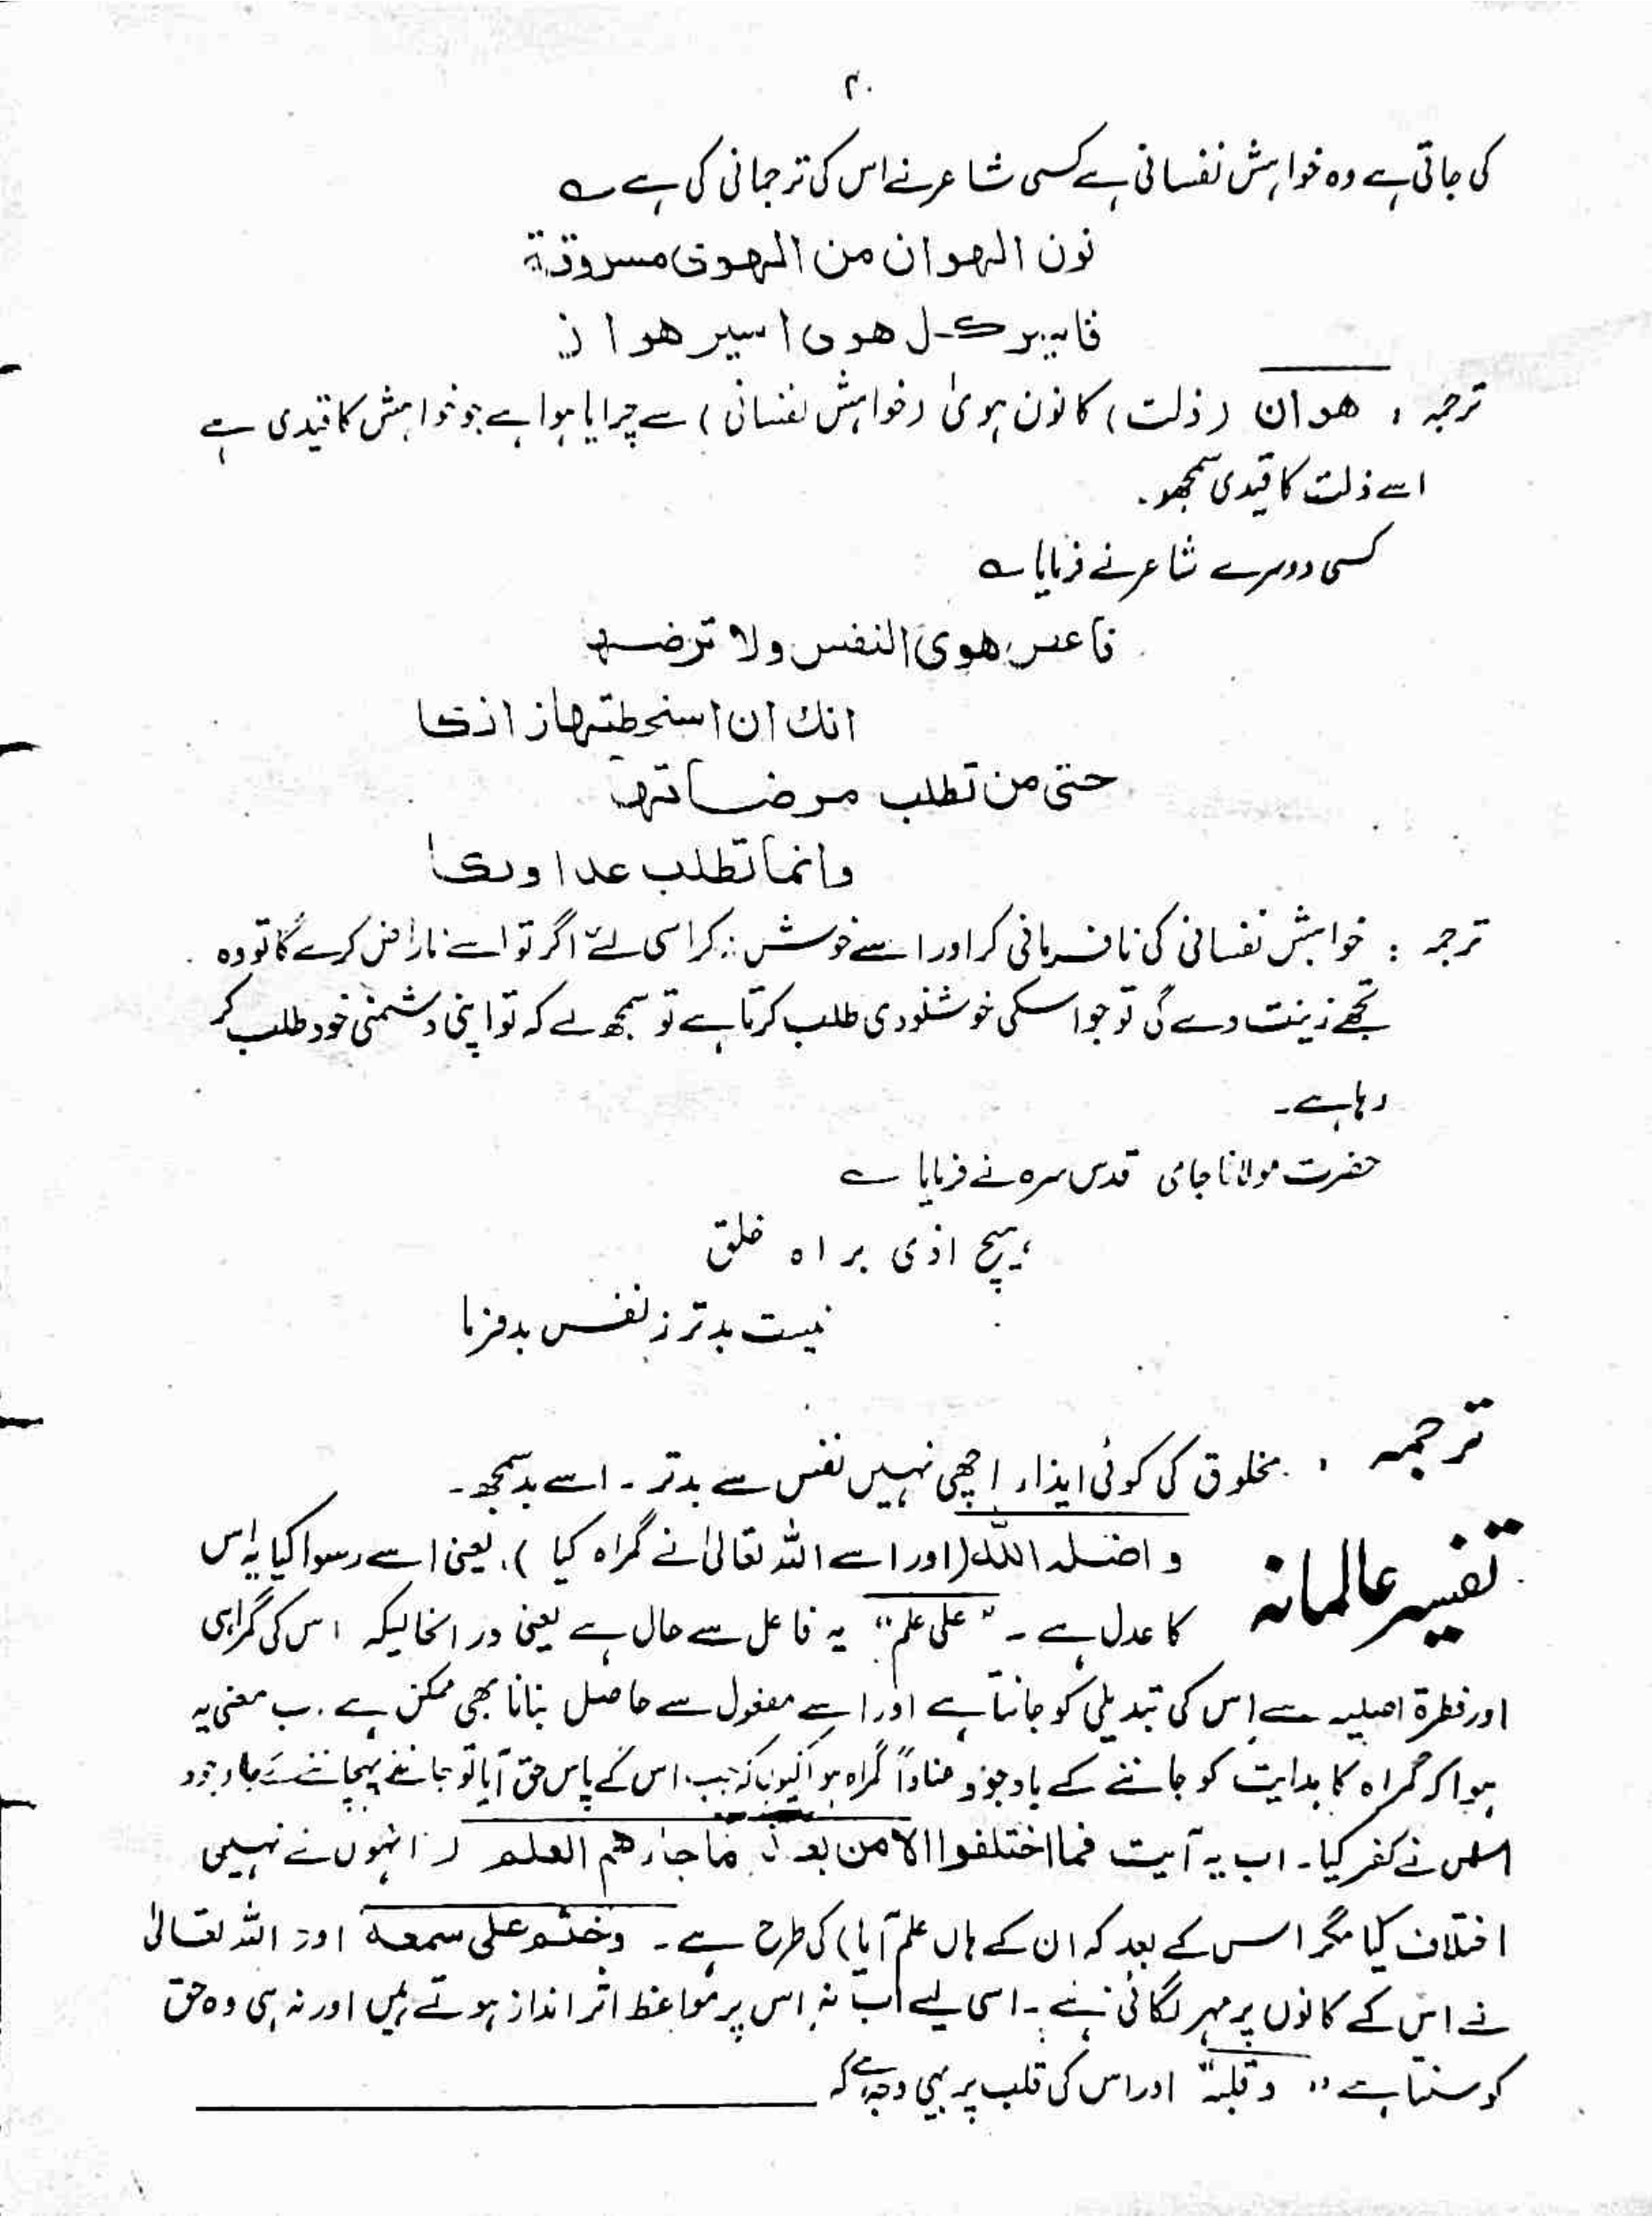 ۲۰
کی جاتی ہے وہ خواہش نفسانی ہے کسی شاعر نے اس کی ترجمانی کی ہے ؎
نون الہوان من الہوی مسروقة
فاسیر کل ھوی اسیر ھوان
ترجمہ : ھوان (ذلت) کا نون ہویٰ (خواہش نفسانی) سے چرایا ہوا ہے جو خواہش کا قیدی ہے
اسے ذلت کا قیدی سمجھو۔
کسی دوسرے شاعر نے فرمایا ؎
فاعص ھوی النفس ولا ترضہا
انک ان اسخطتہا زانکا
حتی من تطلب مرضاتہا
وانما تطلب عدا
ترجمہ : خواہش نفسانی کی نافرمانی کر اور اسے خوش نہ کر اسی لئے اگر تو اسے ناراض کرے گا تو وہ
تجھے زینت دے گی تو جو اسکی خوشنودی طلب کرتا ہے تو سمجھ لے کہ تو اپنی دشمنی خود طلب کر
رہا ہے۔
حضرت مولانا جامی قدس سرہ نے فرمایا ؎
ہیچ اذی براہ خلق
نیست بدتر ز نفس بدفرما
ترجمہ : مخلوق کی کوئی ایذاء اچھی نہیں نفس سے بدتر ۔ اسے بد سمجھ ۔
تفسیر عالمانہ واضلہ اللہ (اور اسے اللہ تعالیٰ نے گمراہ کیا) یعنی اسے رسوا کیا یہ اس
کا عدل ہے ۔ "علی علم" یہ فاعل سے حال ہے یعنی در انحالیکہ اس کی گمراہی
اور فطرۃ اصلیہ سے اس کی تبدیلی کو جانتا ہے اور اسے مفعول سے حاصل بنانا بھی ممکن ہے ۔ب معنی یہ
ہوا کہ گمراہ کا ہدایت کو جاننے کے باوجود عناداً گمراہ ہوا کیونکہ جب اس کے پاس حق آیا تو جاننے پہچاننے کے باوجود
اس نے کفر کیا۔ اب یہ آیت فما اختلفوا الا من بعد ما جاءھم العلم ( انہوں نے نہیں
اختلاف کیا مگر اس کے بعد کہ ان کے ہاں علم آیا) کی طرح ہے ۔ وختم علی سمعہ اور اللہ تعالیٰ
نے اس کے کانوں پر مہر لگائی ہے ۔ اسی لیے اب نہ اس پر مواعظ اثر انداز ہوتے ہیں اور نہ ہی وہ حق
کو سنتا ہے "وقلبہ" اور اس کی قلب پر یہی وجہ ہے کہ